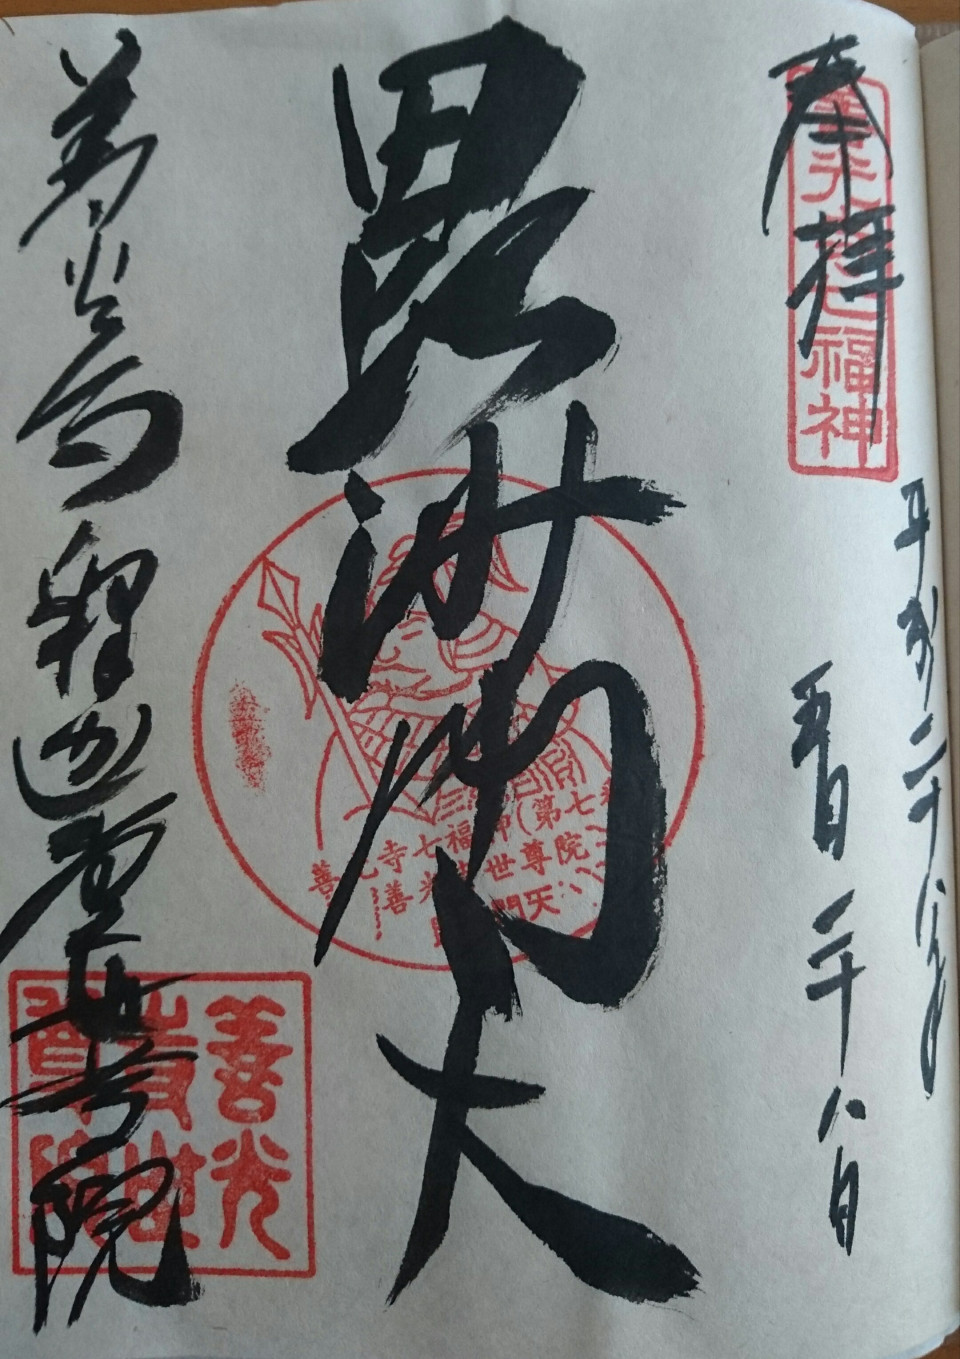 奉拝
善光寺七福神
平成二十八年
五月二十八日
毘沙門天
善光寺七福神(第七
善光寺世尊院
毘沙門天
善光寺釈迦堂世尊院
善光
寺世
尊院